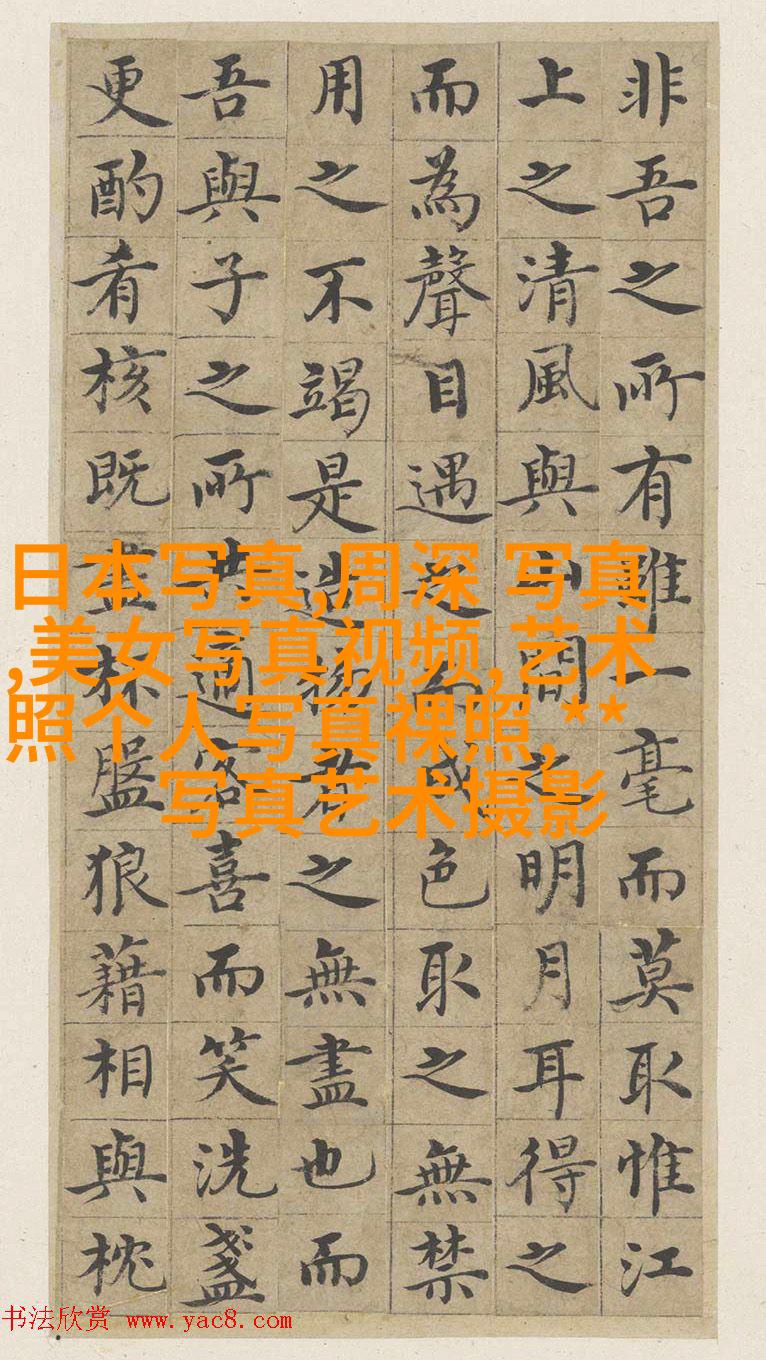 非吾之所有雖一毫而莫取惟江
上之清風與山間之明月耳得之
而為聲目遇之而成色取之無禁
用之不竭是造物者之無盡也而
吾與子之所共適客喜而笑洗盞
更酌肴核既盡杯盤狼藉相與枕
日本写真,周深 写真
,美女写真视频,艺术
照个人写真祼照,**
写真艺术摄影
书法欣赏 www.yac8.com